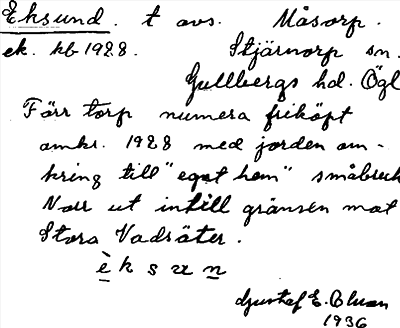 Eksund. t avs. Måsorp.
ek. kb 1928. Stjärnorp sn.
Gullbergs hd. Ögl
Förr torp numera friköpt
omkr. 1928 med jorden om-
kring till "eget hem" småbruk
Norr ut intill gränsen mot
Stora Vadsäter.
è k s ɯ n
Gustaf E. Olsson
1936